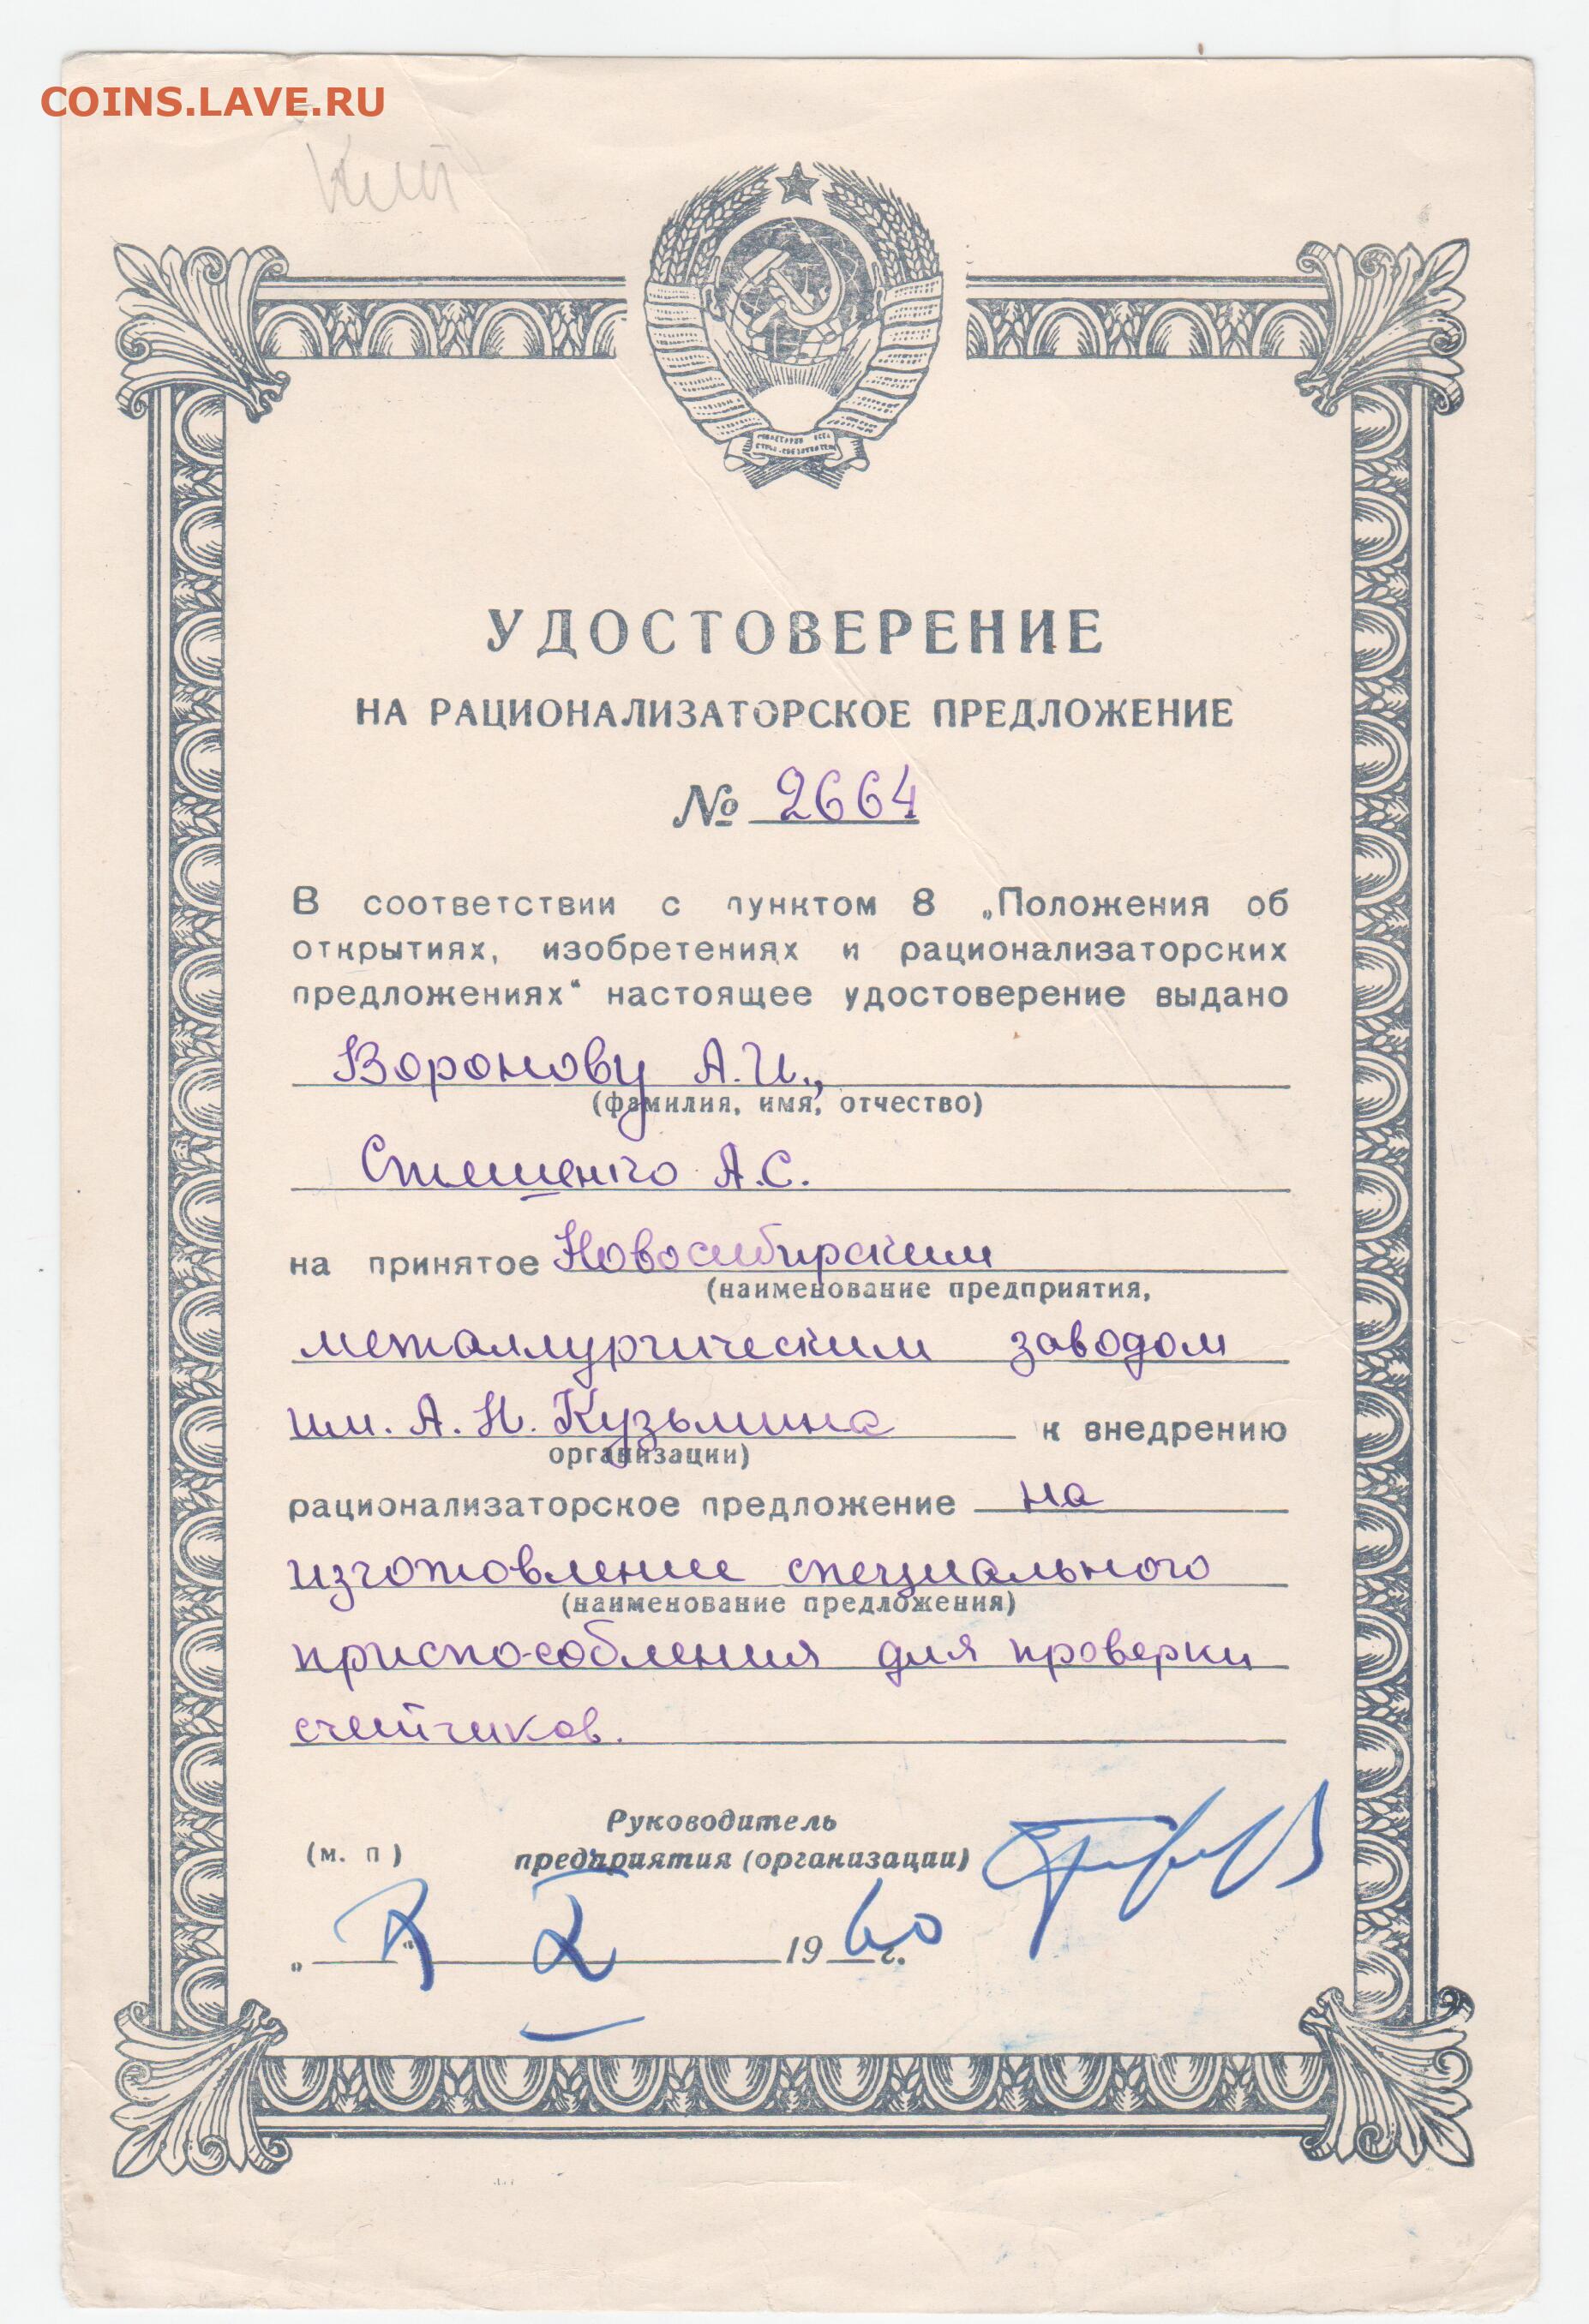 COINS.LAVE.RU
УДОСТОВЕРЕНИЕ
НА РАЦИОНАЛИЗАТОРСКОЕ ПРЕДЛОЖЕНИЕ
№ 2664
В соответствии с пунктом 8 „Положения об
открытиях, изобретениях и рационализаторских
предложениях“ настоящее удостоверение выдано
Воронову А.И.,
(фамилия, имя, отчество)
А.С.
на принятое Новосибирским
(наименование предприятия,
металлургическим заводом
им. А. Н. Кузьмина к внедрению
организации)
рационализаторское предложение на
изготовление специального
(наименование предложения)
приспо-собления для проверки
счетчиков.
Руководитель
(м. п) предприятия (организации)
1960 г.